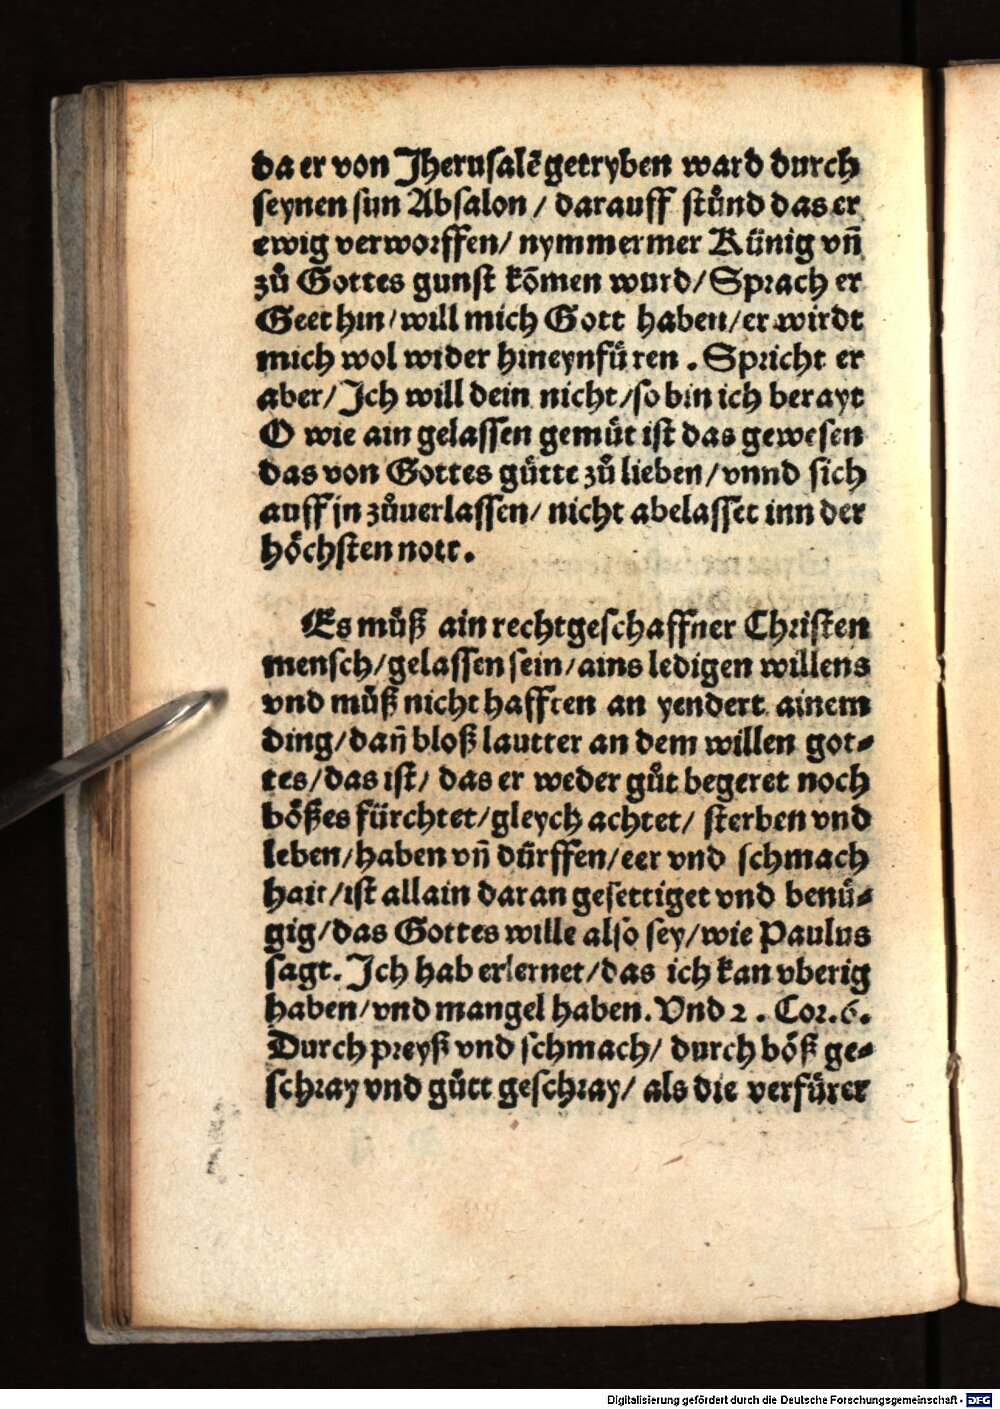 da er von Jherusalẽ getryben ward durch
seynen sun Absalon / darauff stůnd das er
ewig verworffen / nymmermer Künig vñ
zů Gottes gunst kõmen wurd / Sprach er
Geet hin / will mich Gott haben / er wirdt
mich wol wider hineynfüren . Spricht er
aber / Jch will dein nicht / so bin ich berayt
O wie ain gelassen gemüt ist das gewesen
das von Gottes gütte zů lieben / vnnd sich
auff jn zůuerlassen / nicht abelasset inn der
höchsten nott .
Es můß ain rechtgeschaffner Christen
mensch / gelassen sein / ains ledigen willens
vnd můß nicht hafften an yendert ainem
ding / dañ bloß lautter an dem willen got⸗
tes / das ist / das er weder gůt begeret noch
bößes fürchtet / gleych achtet / sterben vnd
leben / haben vñ dürffen / eer vnd schmach
hait / ist allain daran gesettiget vnd benü⸗
gig / das Gottes wille also sey / wie Paulus
sagt . Jch hab erlernet / das ich kan vberig
haben / vnd mangel haben . Vnd 2 . Cor . 6 .
Durch preyß vnd schmach / durch böß ge⸗
schray vnd gůtt geschray / als die verfürer
Digitalisierung gefördert durch die Deutsche Forschungsgemeinschaft - DFG